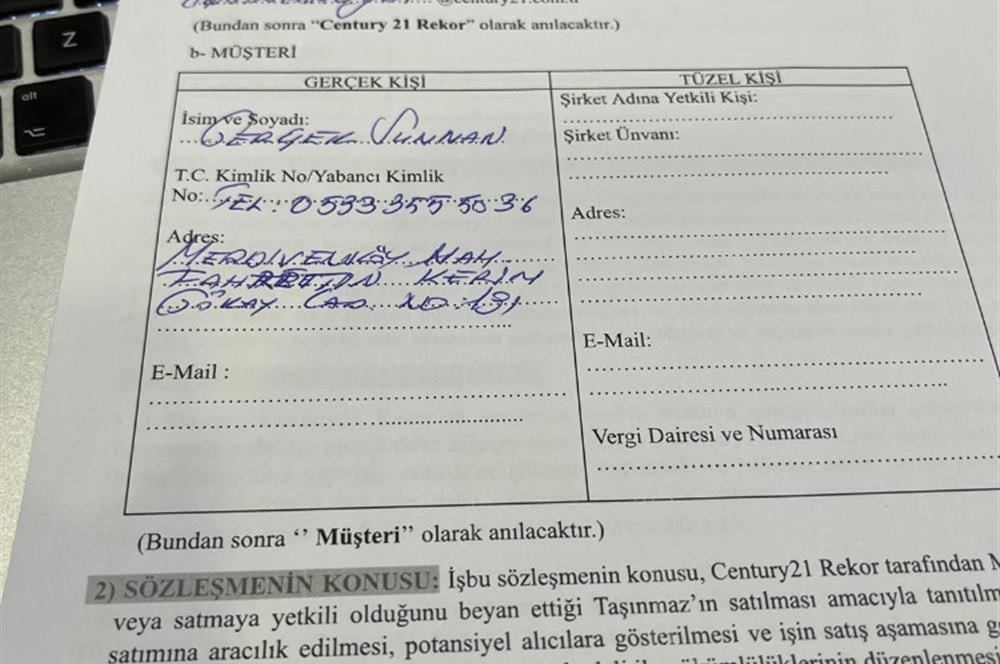 @century21.com.tr
(Bundan sonra “Century 21 Rekor” olarak anılacaktır.)
b- MÜŞTERİ
GERÇEK KİŞİ
İsim ve Soyadı:
GERÇEK SUNMAN
T.C. Kimlik No/Yabancı Kimlik
No: TEL: 0533 355 50 36
Adres:
MERDİVENKÖY MAH
FAHRETTİN KERİM
GÖKAY CAD NO:191
E-Mail :
TÜZEL KİŞİ
Şirket Adına Yetkili Kişi:
Şirket Ünvanı:
Adres:
E-Mail:
Vergi Dairesi ve Numarası
(Bundan sonra ‘’ Müşteri” olarak anılacaktır.)
2) SÖZLEŞMENİN KONUSU: İşbu sözleşmenin konusu, Century21 Rekor tarafından
veya satmaya yetkili olduğunu beyan ettiği Taşınmaz’ın satılması amacıyla tanıtılm
satımına aracılık edilmesi, potansiyel alıcılara gösterilmesi ve işin satış aşamasına
düzenlenmesi
Z
alt